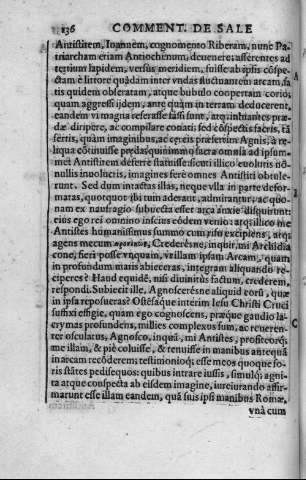 136 COMMENT. DE SALE
Antistitem, Ioannem, cognomento Riberam, nunc Pa-
triarcham etiam Antiochenum, deuenere: asserentes ad
tertium lapidem, versus meridiem, fuisse ab ipsis cōspe-
ctam è littore quâdam inter vndas fluctuantem arcam sa
tis quidem obseratam, atque bubulo coopertam corio;
quam aggressi ijdem, ante quàm in terram deducerent,
eandem vi magna referasse iassi sunt, atq; inhiantes præ-
dæ diripere, ac compilare conati: sed cōspectis sacris, tā
sertis, quàm imaginibus, ac cereis præsertim Agnis, à re-
liqua cōtinuisse prædas quin imò sacra omnia ad ipsum-
met Antistitem deferre statuisse: sicuti illico euolutis nō-
nullis inuolucris, imagines fere omnes Antistiti obtule-
runt. Sed dum intactas illas, neque vlla in parte defor-
matas, quotquot ibi tum aderant, admirantur, ac quo-
nam ex naufragio subiecta esset arca anxiè disquirunt:
eius ego rei omnino inscius eòdem venio: atq; illico me
Antistes humanissimus summo cum risu excipiens, atq;
agens mecum Crederésne, inquit, mi Archidia
cone, fieri posse vnquam, vt illam ipsam Arcam, quam
in profundum maris abieceras, integram aliquando re-
ciperes? Haud equidē, nisi diuinitus factum, crederem,
respondi. Subiecit ille, Agnoscerésne aliquid eorū, quæ
in ipsa reposueras? Ostēsaque interim Iesu Christi Cruci
suffixi effigie, quam ego cognoscens, præque gaudio la-
crymas profundens, millies complexus sum, ac reueren-
ter osculatus, Agnosco, inquā, mi Antistes, profiteorq;
me illam, & piè coluisse, & tenuisse in manibus antequā
in arcam recōderem: testimonioq; esse meos quoque fo-
ris stātes pedisequos: quibus intrare iussis, simulq; agni-
ta atque conspecta ab eisdem imagine, iureiurando affir-
marunt esse illam eandem, quā suis ipsi manibus Romæ,
vnà cum